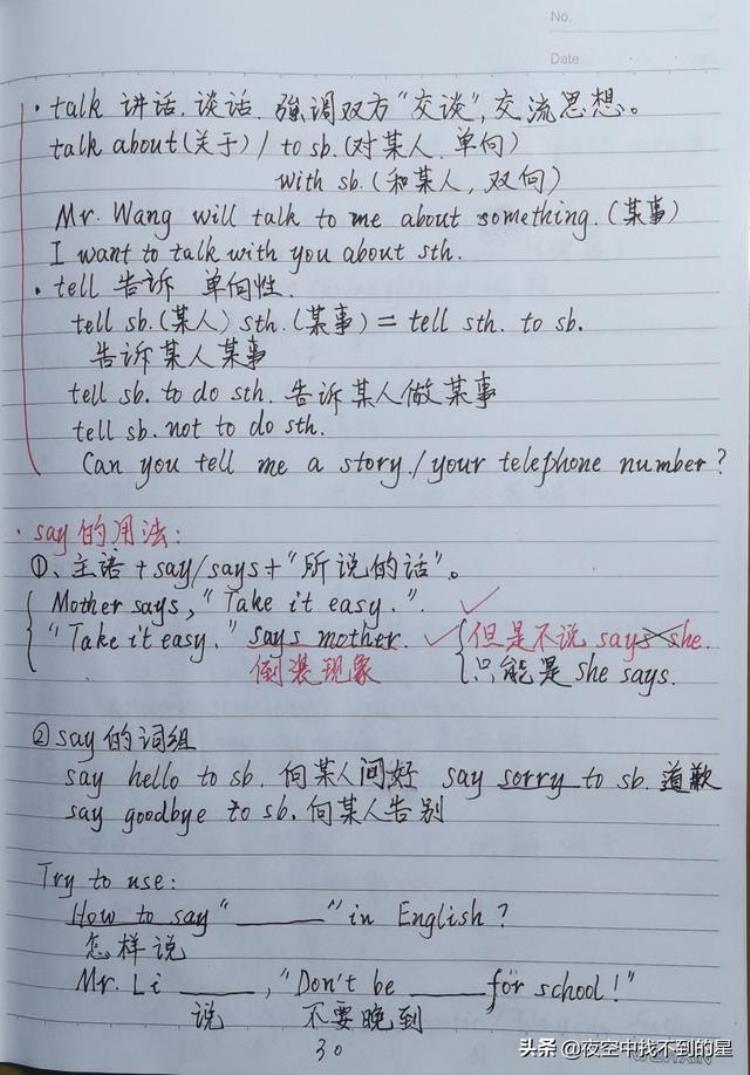 No.
Date
· talk 讲话, 谈话. 强调双方“交谈”, 交流思想。
talk about(关于) / to sb.(对某人. 单向)
with sb.(和某人, 双向)
Mr. Wang will talk to me about something.(某事)
I want to talk with you about sth.
· tell 告诉 单向性.
tell sb.(某人) sth.(某事) = tell sth. to sb.
告诉某人某事
tell sb. to do sth. 告诉某人做某事
tell sb. not to do sth.
Can you tell me a story./your telephone number?
· say的用法:
①、主语+say/says+“所说的话”。
Mother says, “Take it easy.”. ✓
“Take it easy.” says mother. ✓ 但是不说 says she.
倒装现象 只能是she says.
②say的词组
say hello to sb. 向某人问好 say sorry to sb. 道歉
say goodbye to sb. 向某人告别
Try to use:
How to say “______” in English?
怎样说
Mr. Li _____, “Don't be _____ for school!”
说 不要晚到
30
头条 @夜空中找不到的星